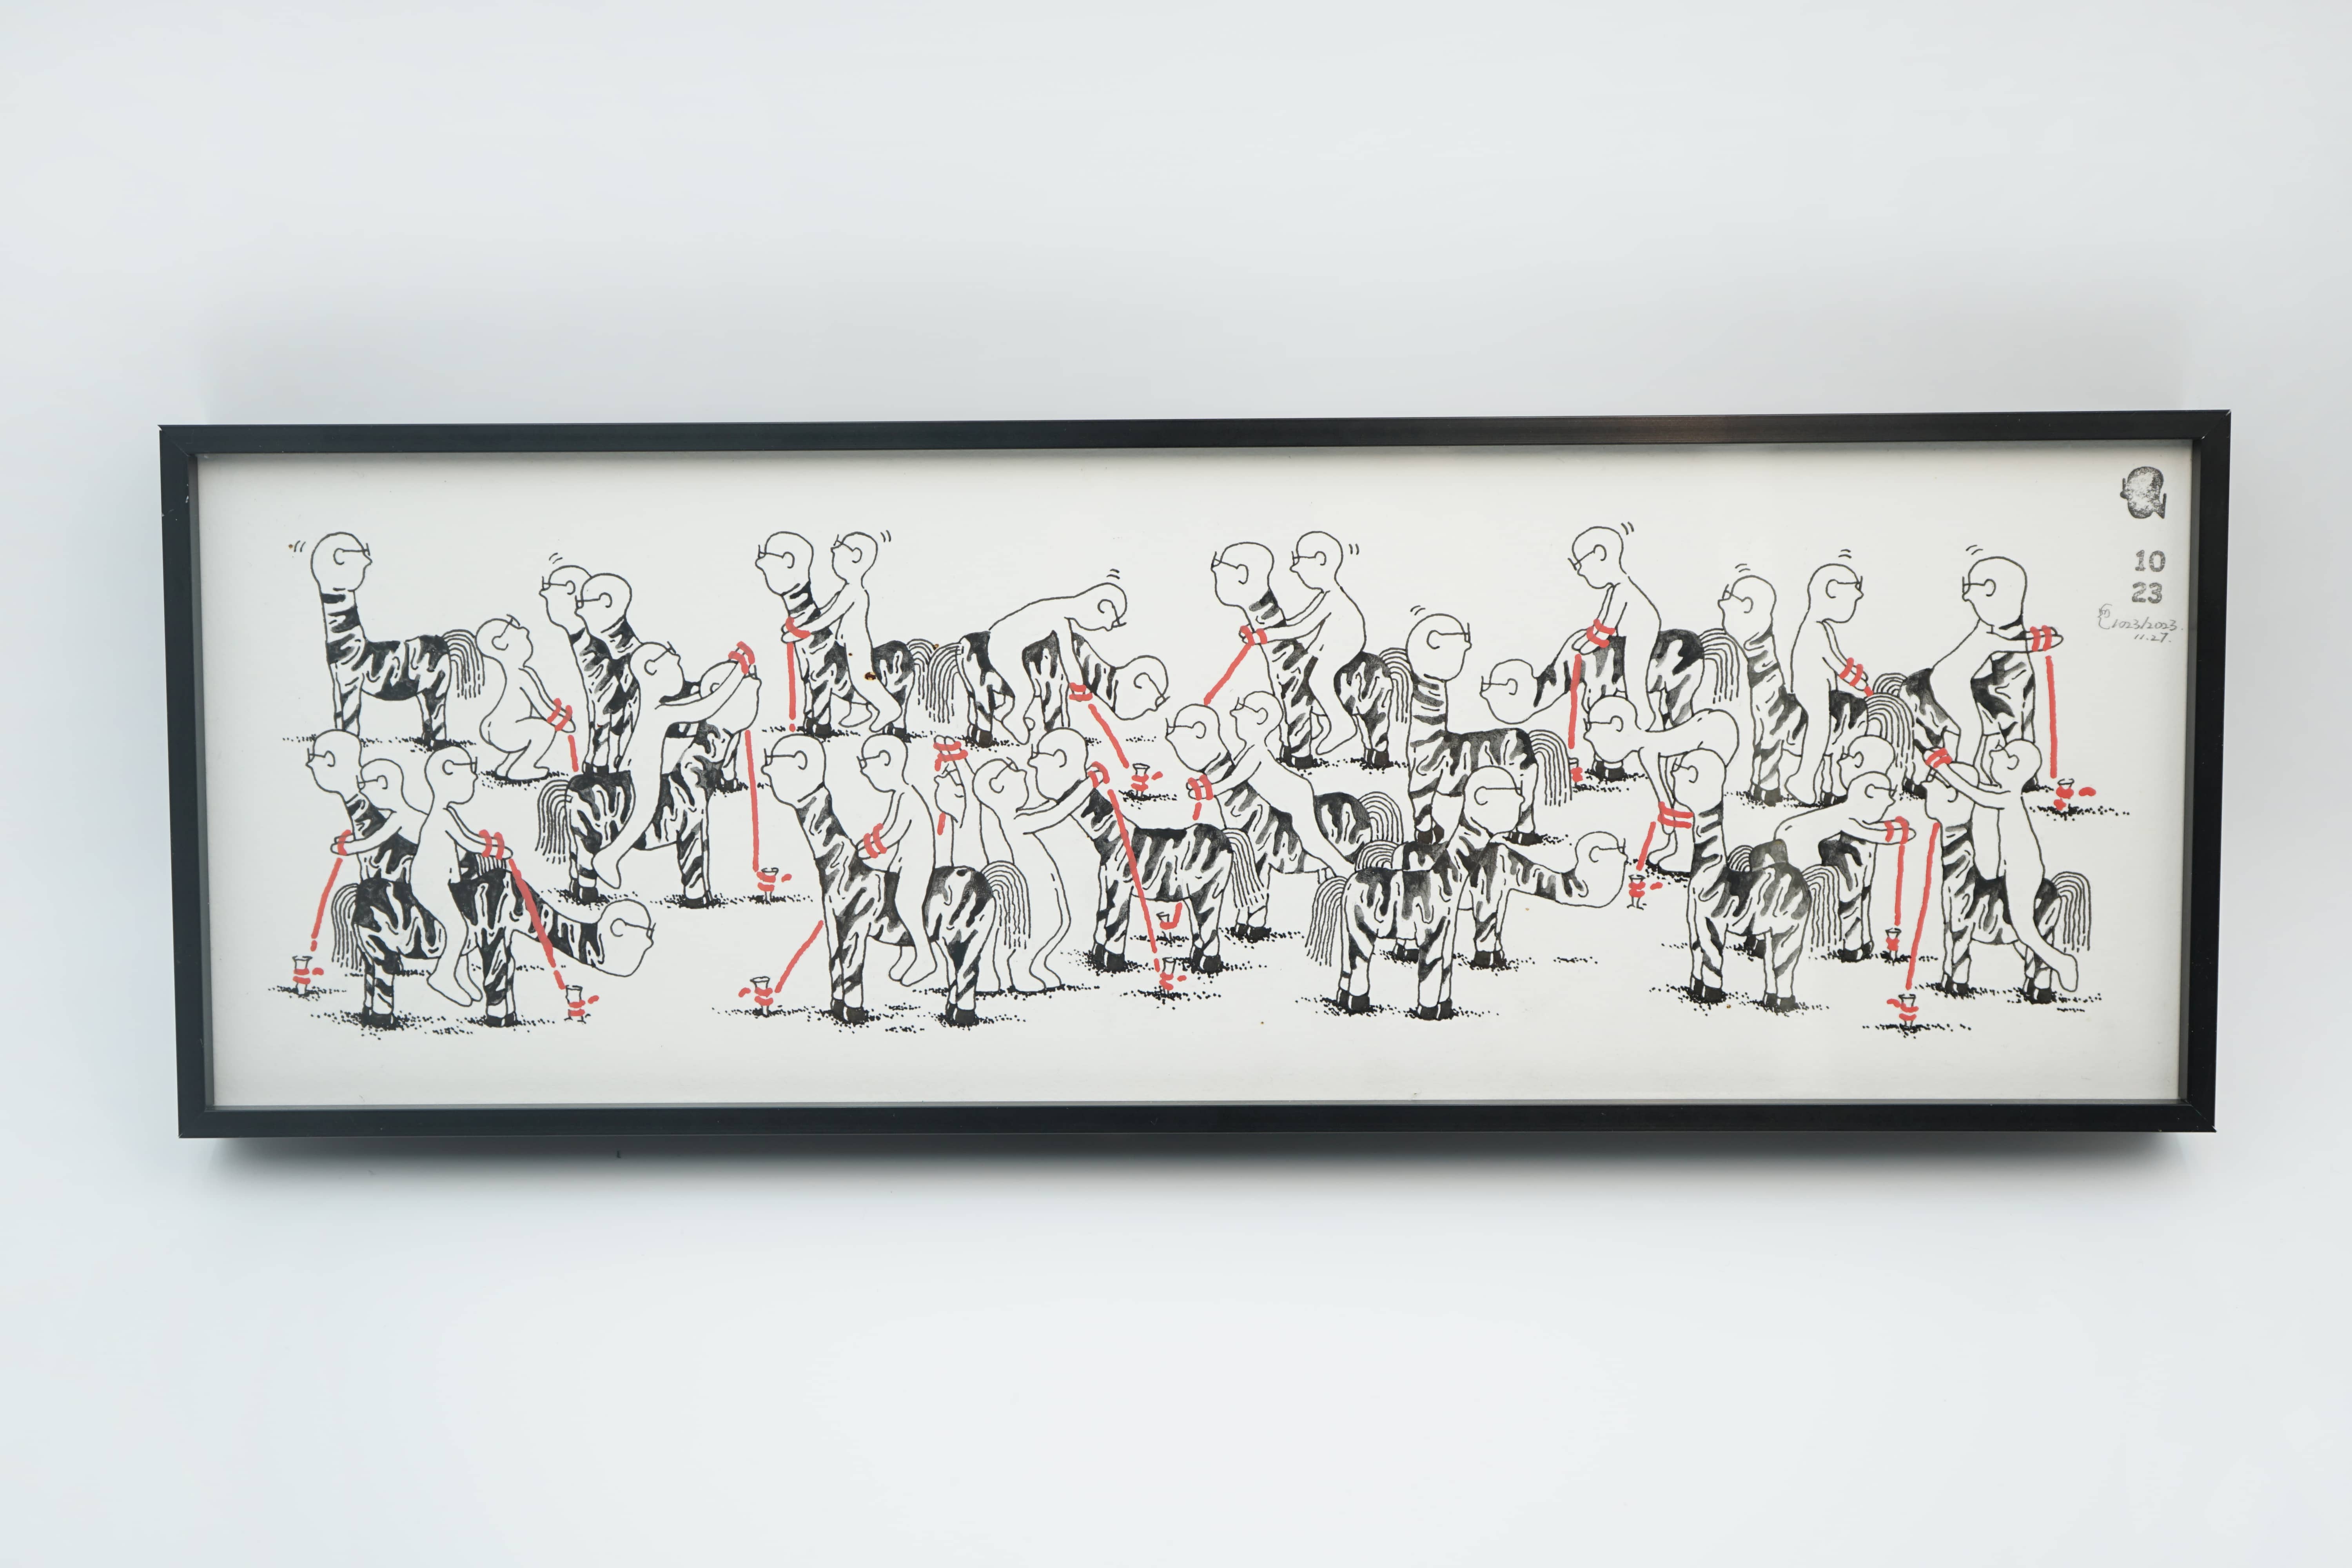 10
23
1023/2023.
11.27.